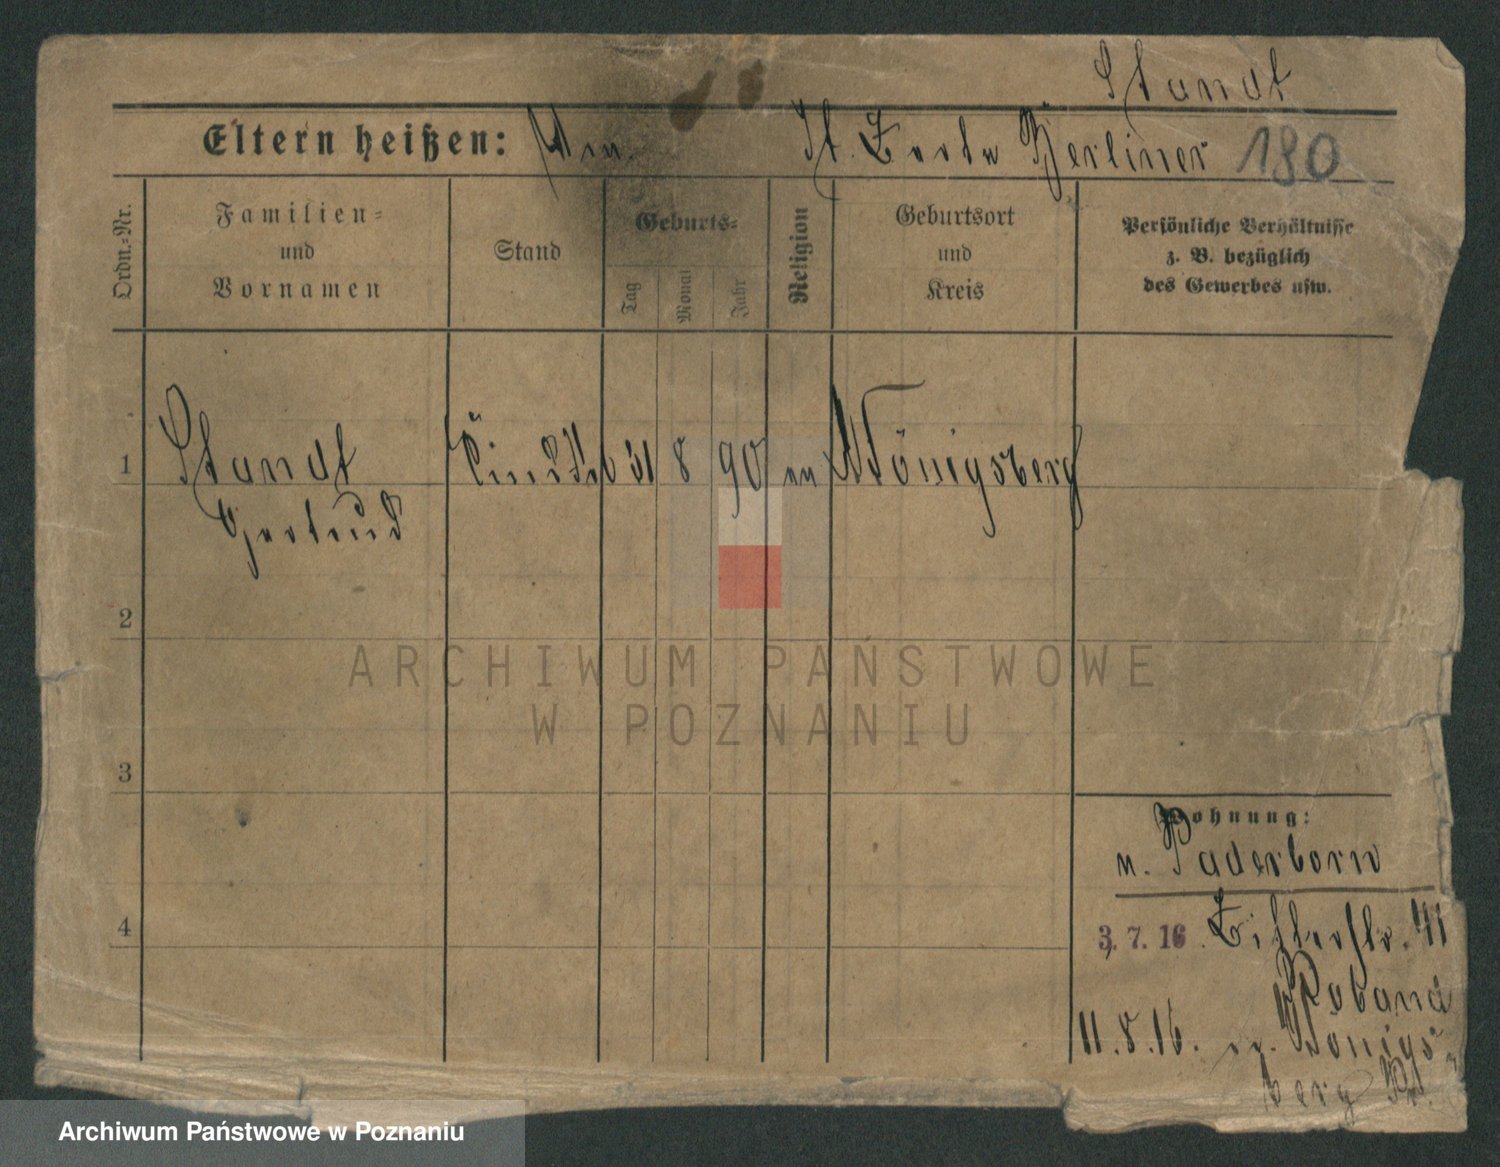 Standt
Eltern heißen: Berliner 180
Ordn.-Nr.
Familien-
und
Vornamen
Stand
Geburts-
Tag
Monat
Jahr
Religion
Geburtsort
und
Kreis
Persönliche Verhältnisse
z. B. bezüglich
des Gewerbes usw.
1 Standt 31 8 90 Königsberg
Gertrud
2
3
4
ARCHIWUM PAŃSTWOWE
W POZNANIU
Wohnung:
n. Paderborn
3. 7. 16
11. 8. 16. n. Königs-
berg Pr.
Archiwum Państwowe w Poznaniu